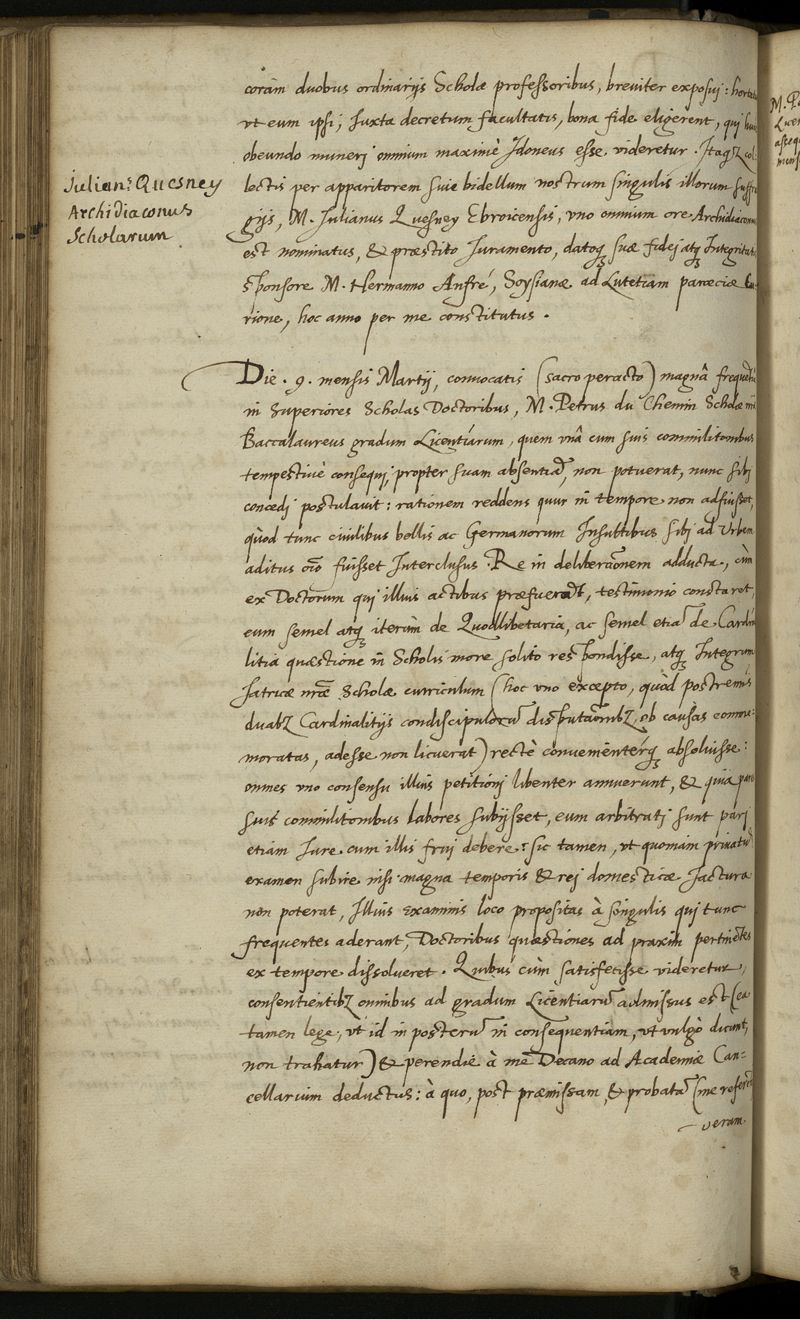 coràm duobus ordinarijs Scholæ professoribus, breuiter exposui: 
vt eum ipsi, Juxta decretum facultatis, bona fide eligerent, qui
obeundo muneri omnium maximè Jdoneus esse videretur. Itaqz col-
Julian9 Quesney
Archidiaconus
Scholarum
lectis per apparitorem siue bidellum nostrum singulis illorum suffra
gijs, M. Julianus Quesney Ebroicensis, vno omnium ore Archidiaconus
est nominatus, & præstito Juramento, datoqz suæ fidei atqz Integritatis
sponsore M. Hermanno Anfré, Soysianæ ad Lutetiam parœciæ Cu-
rione, hoc anno per me constitutus.
Die. 9. mensis Martij, conuocatis (sacro peracto) magnâ
in Superiores Scholas Doctoribus, M. Petrus du Chemin Scholæ
Baccalaureus gradum Licentiarum, quem vnâ cum suis commilitonibus
tempestiuè consequi, propter suam absentiã, non potuerat, nunc sibi
concedi postulauit: rationem reddens quur in tempore non adfuisset,
quòd tunc ciuilibus bellis ac Germanorum Insultibus sibi ad Vrbem
aditus oĩo fuisset Interclusus. Re in deliberaõnem adducta, cùm
ex Doctorum qui illius actibus præfuerãt, testimonio constaret,
eum semel atqz iterùm de Quodlibetaria, ac semel etiã de Cardina
litia quæstione in Scholis more solito respondisse, atqz Integrum
Jatricæ nr̃æ Scholæ curriculum (hoc vno excepto, quòd postremis
duabz Cardinalitijs condiscipulorũ disputaõnibz, ob causas comme-
moratas, adesse non licuerat) rectè conuenientérqz absoluisse:
omnes vno consensu illius petitioni libenter annuerunt, & quia
suis commilitonibus labores subijsset, eum arbitrati sunt pari
etiam Jure cum illis frui debere: sic tamen, vt quoniam priuatũ
examen subire nisi magna temporis & rei domesticæ Jactura
non poterat, Illius examinis loco propositas à singulis qui tunc
frequentes aderant, Doctoribus quæstiones ad praxim pertinẽtes
ex tempore dissolueret. Quibus cùm satisfecisse videretur,
consentientibz omnibus ad gradum Licentiarũ admissus est (ea
tamen lege, vt id in posterũ in consequentiam, vt vulgò dicunt,
non trahatur) & perendiè à me Decano ad Academiæ Can-
cellarium deductus: à quo, post præmissam, & probatã (me
ueram